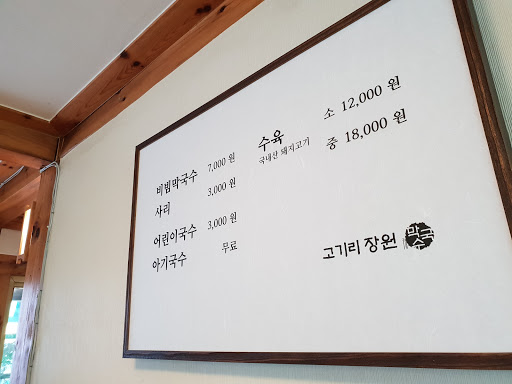 비빔막국수 7,000 원
사리 3,000 원
어린이국수 3,000 원
아기국수 무료
수육 소 12,000 원
국내산 돼지고기 중 18,000 원
고기리 장원 막국수